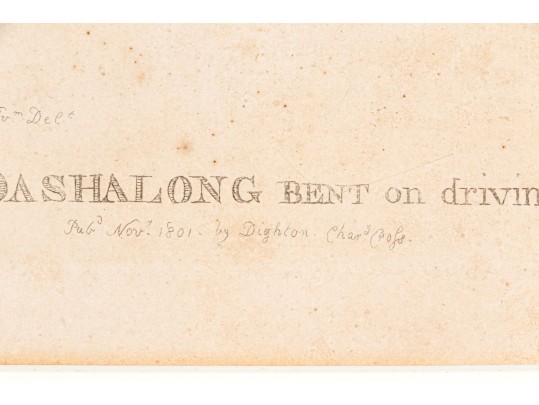 Delt
DASHALONG BENT on drivin
Pubd Novr 1801. by Dighton. Chard Cross.